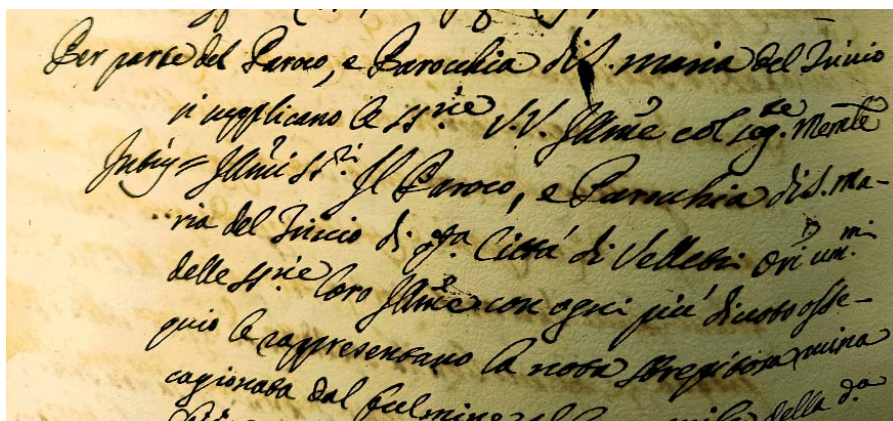 Per parte del Paroco, e Parochia di S. Maria del Trivio
si supplicano le SS.rie V.V. Ill.me col seg.te Memle
Ill.mi SS.ri Il Paroco, e Parochia di S. Ma-
ria del Trivio di q.sta Città di Velletri Ori um.mi
delle SS.rie loro Ill.me con ogni più divoto osse-
quio le rappresentano la nota strepitosa ruina
cagionata dal fulmine al della d.a